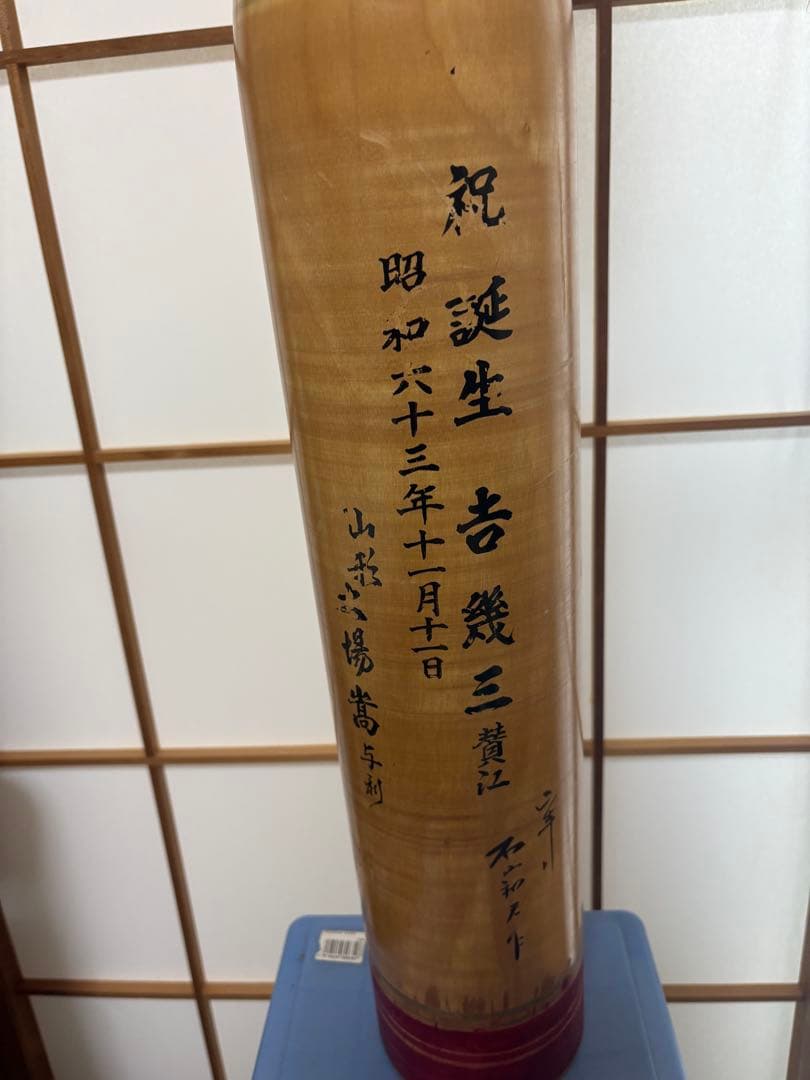 祝誕生 吉幾三 賛江
昭和六十三年十一月十一日
山形 馬場嵩与利
石山和夫作